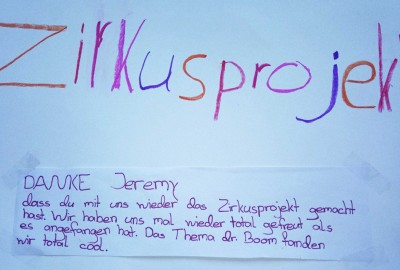 Zirkusprojek
DANKE Jeremy
dass du mit uns wieder das Zirkusprojekt gemacht
hast. Wir haben uns mal wieder total gefreut als
es angefangen hat. Das Thema dr. Boom fanden
wir total cool.